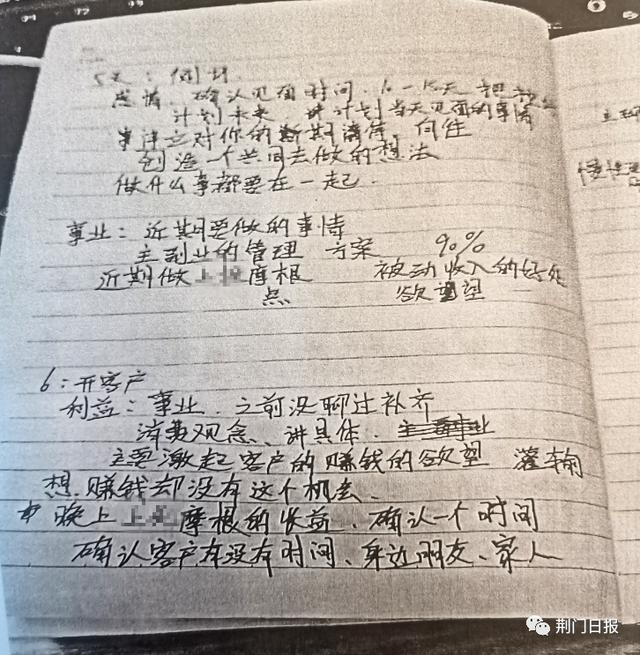 5天：
感情：确认见面时间．6-15天
计划未来 讲计划当天见面的事情
事件之对你的 期 向往
创造一个共同去做的想法
做什么事都要在一起．
事业：近期要做的事情
主副业的管理 方案 90%
近期做 摩根 被动收入的好处
点 欲望
6：开客户
利益：事业．之前没聊过补齐
消费观念、讲具体．
主要激起客户的赚钱的欲望 灌输
想．赚钱却没有这个机会．
晚上 摩根的收益．确认一个时间
确认客户有没有时间、身边朋友、家人
荆门日报